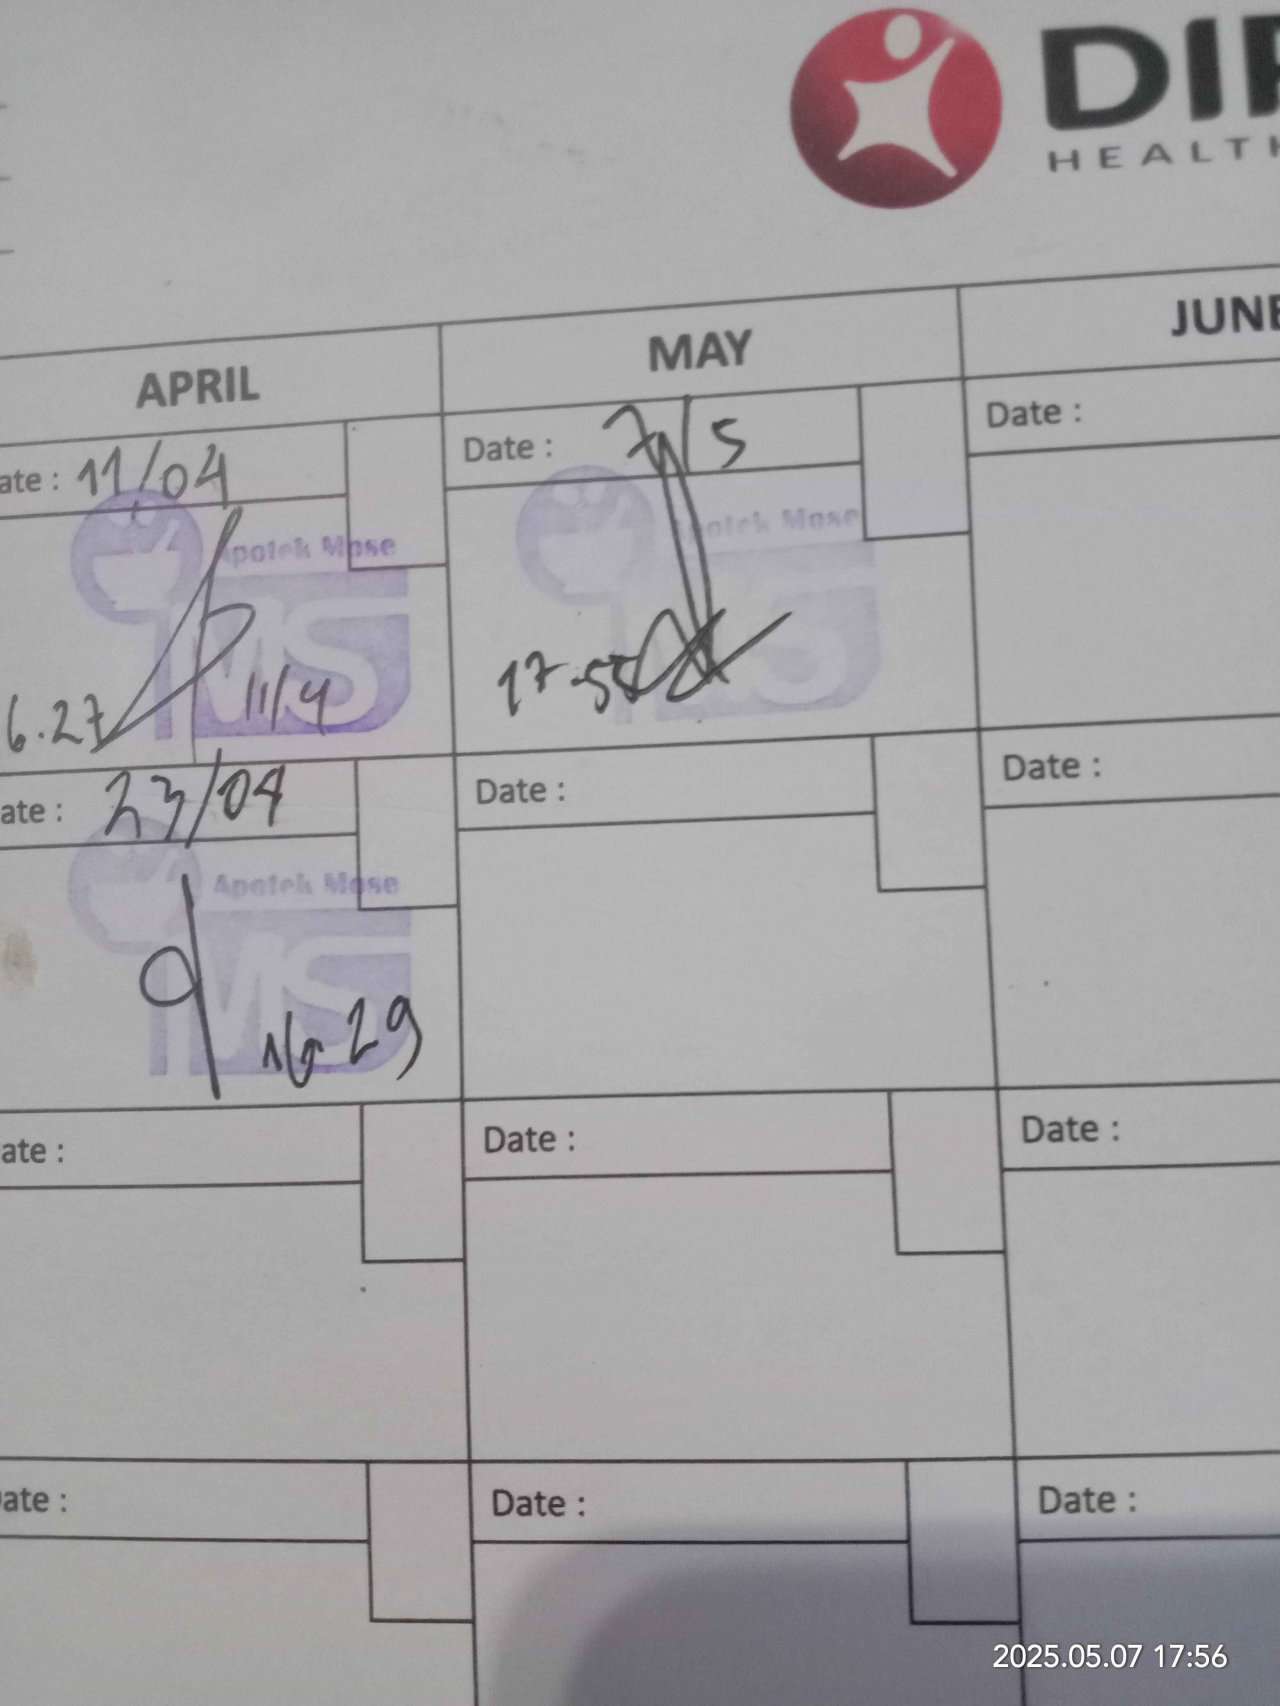 DI
HEALTH
APRIL
MAY
JUNE
ate : 11/04
Date : 7/5
Date :
Apotek Mose
MS
6.27
11/4
Apotek Mose
MS
17.55
ate : 23/04
Date :
Date :
Apotek Mose
MS
16 29
ate :
Date :
Date :
ate :
Date :
Date :
2025.05.07 17:56